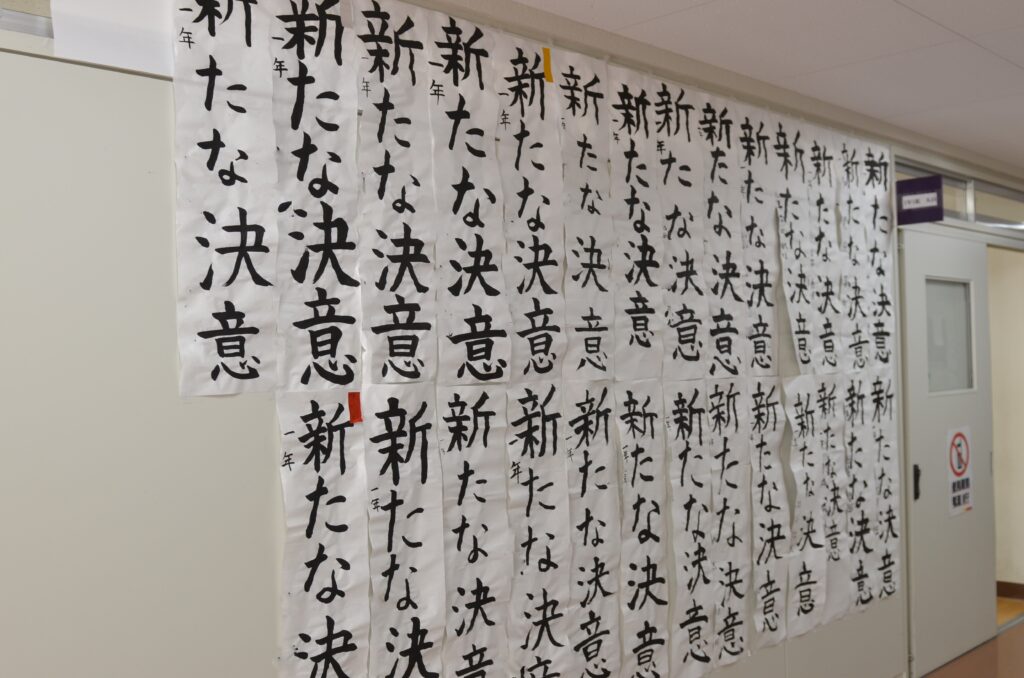 新たな決意
新たな決意
新たな決意
新たな決意
新たな決意
新たな決意
新たな決意
新たな決意
新たな決意
新たな決意
一年
新たな決意
一年
新たな決意
一年
新たな決意
一年
新たな決意
一年
新たな決意
新たな決意
新たな決意
新たな決意
新たな決意
新たな決意
新たな決意
新たな決意
新たな決意
新たな決意
新たな決意
新たな決意
一年
新たな決
一年
新たな決
一年